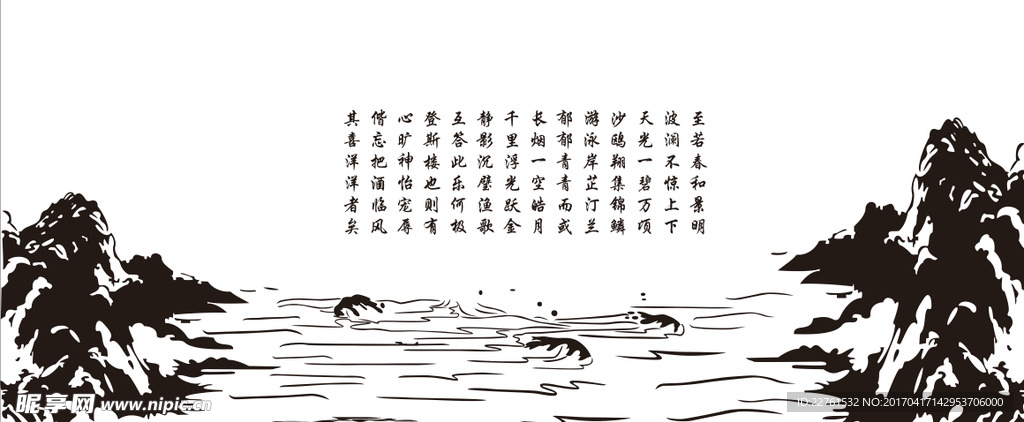 至若春和景明
波澜不惊上下
天光一碧万顷
沙鸥翔集锦鳞
游泳岸芷汀兰
郁郁青青而或
长烟一空皓月
千里浮光跃金
静影沉璧渔歌
互答此乐何极
登斯楼也则有
心旷神怡宠辱
偕忘把酒临风
其喜洋洋者矣
昵享网 www.nipic.cn
ID:22761532 NO:20170417142953706000